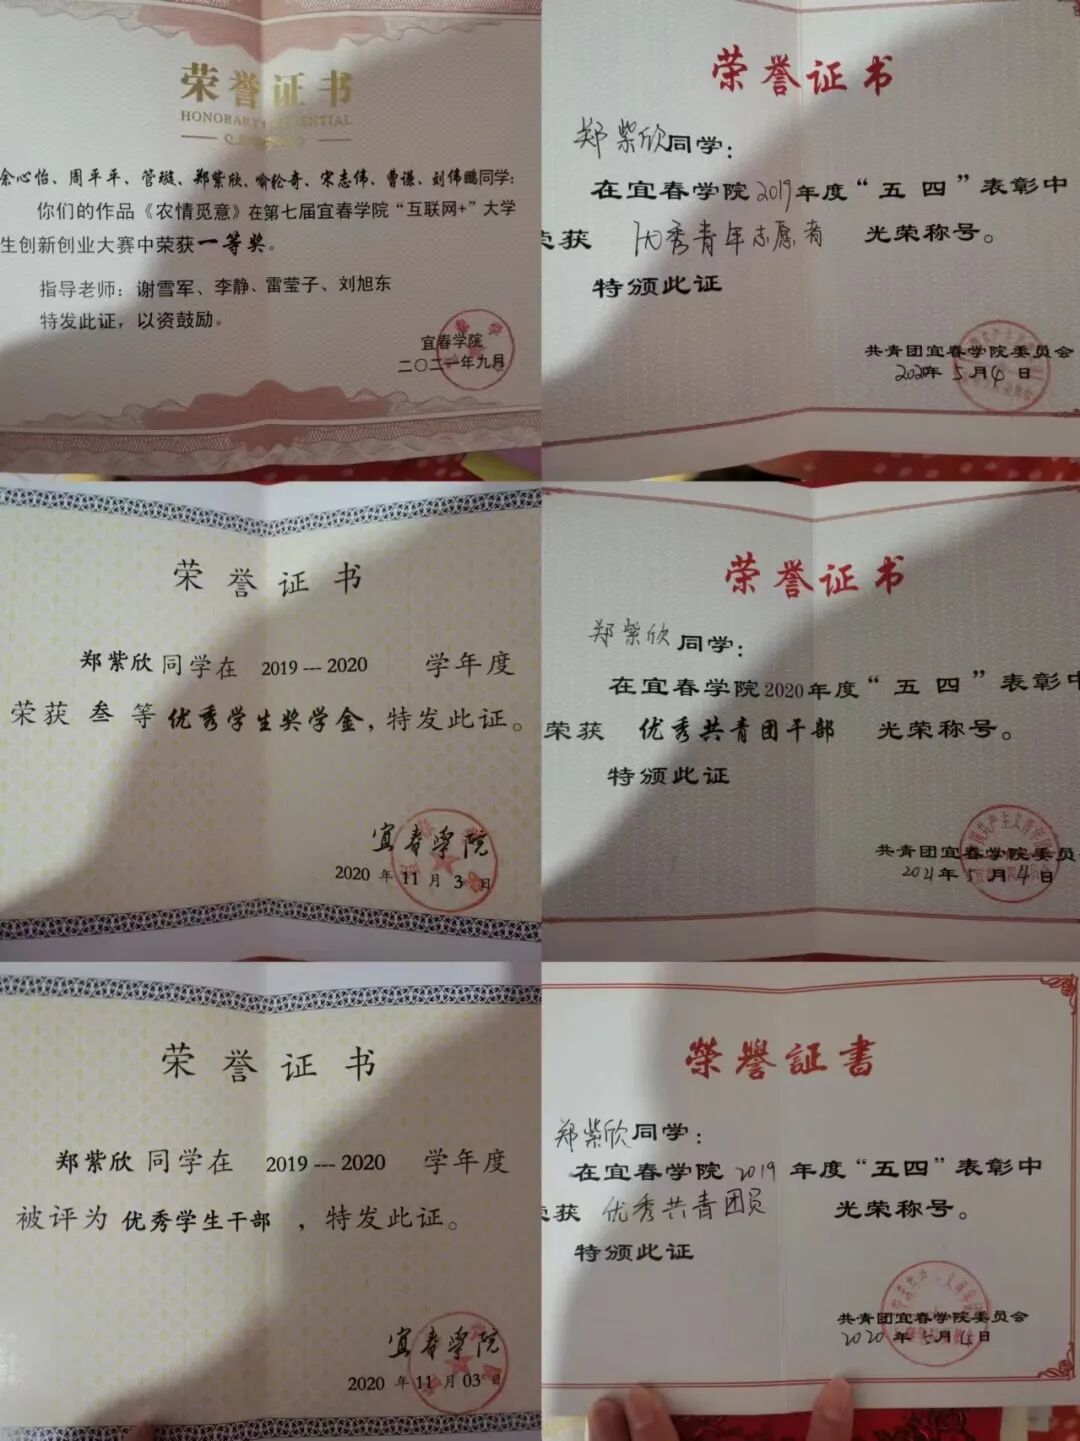 荣誉证书
HONORARY CREDENTIAL
余心怡、周平平、管璇、郑紫欣、喻轮奇、宋志伟、曹谦、刘伟鹏同学：
你们的作品《农情觅意》在第七届宜春学院“互联网+”大学
生创新创业大赛中荣获一等奖。
指导老师：谢雪军、李静、雷莹子、刘旭东
特发此证，以资鼓励。
宜春学院
二〇二一年九月
荣誉证书
郑紫欣同学：
在宜春学院2019年度“五四”表彰中
荣获 优秀青年志愿者 光荣称号。
特颁此证
共青团宜春学院委员会
2020年5月4日
荣誉证书
郑紫欣同学在 2019---2020 学年度
荣获 叁 等 优秀学生奖学金，特发此证。
宜春学院
2020 年 11 月 3 日
荣誉证书
郑紫欣同学：
在宜春学院2020年度“五四”表彰中
荣获 优秀共青团干部 光荣称号。
特颁此证
共青团宜春学院委员会
2021年5月4日
荣誉证书
郑紫欣同学在 2019---2020 学年度
被评为 优秀学生干部 ，特发此证。
宜春学院
2020 年 11 月 03 日
榮譽証書
郑紫欣同学：
在宜春学院2019年度“五四”表彰中
荣获 优秀共青团员 光荣称号。
特颁此证
共青团宜春学院委员会
2020年5月4日